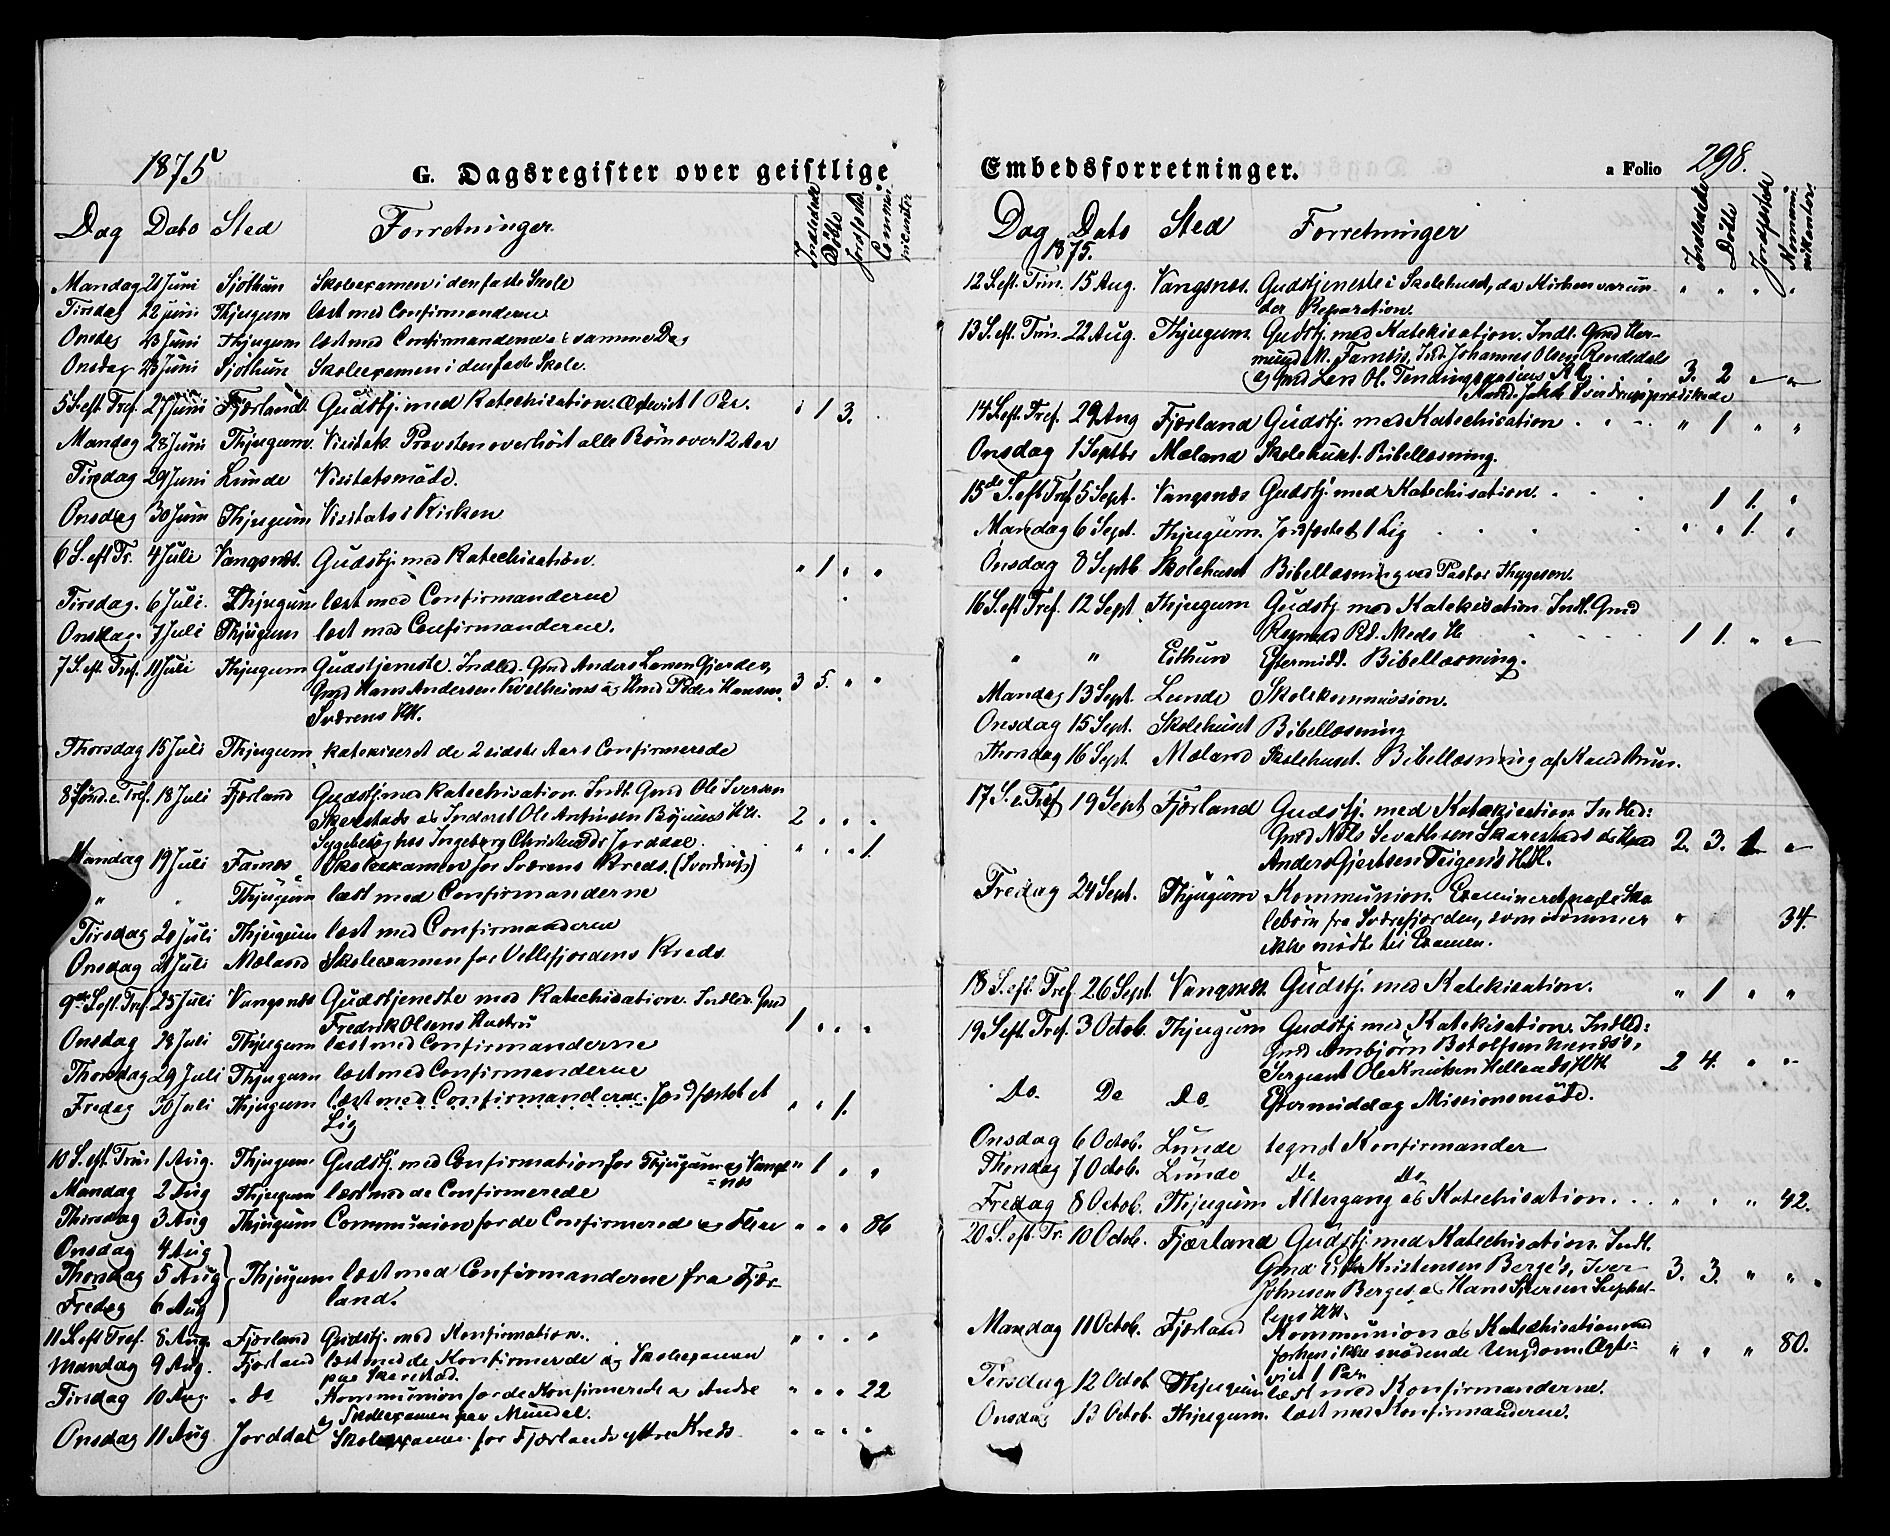 1875
G. Dagsregister over geistlige
Dag Dato Sted Forretninger Indledede Döbte Jordfæst. Communicanter
Mandag 21 Juni Sjöthun Skoleexamen i den faste Skole
Tirsdag 22 Juni Thjugum læst med Confirmanderne
Onsdag 23 Juni Thjugum læst med Confirmanderne samme Dag
Onsdag 23 Juni Sjöthun Skoleexamen i den faste Skole.
5 S. eft. Tref. 27 Juni Fjærland. Gudstj. med Katechisation. Ægteviet 1 Par. " 1 3.
Mandag 28 Juni Thjugum. Visitats. Provsten overhört alle Börn over 12 Aar
Tirsdag 29 Juni Lunde Visitatsmöde.
Onsdag 30 Juni Thjugum Visitats i Kirken
6 S. eft Tr. 4 Juli Vangsnæs. Gudstj. med Katechisation. " 1 " "
Tirsdag. 6 Juli. Thjugum læst med Confirmanderne
Onsdag. 7 Juli Thjugum læst med Confirmanderne.
7 S. eft Tref. 11 Juli Thjugum Gudstjeneste. Indled. Gmd Anders Larsen Gjerdes,
Gmd Hans Andersen Kvelheims og Kmd Peder Hansen 3 5. " "
Sværens KK.
Thorsdag 15 Juli Thjugum katekiseret de 2 sidste Aars Confirmerede
8 Sönd. e. Tref. 18 Juli Fjærland Gudstj med Katechisation. Indl. Gmd Ole Iversen
Skarestads og Inderst Ole Antonsen Böjums KK. 2 " " "
Sygebesög hos Ingeborg Christensdtr Jorddal. " " " 1.
Mandag 19 Juli Farnes Skoleexamen for Sværens Kreds. (Sverdrup)
" " Thjugum læst med Confirmanderne
Tirsdag 20 Juli Thjugum læst med Confirmanderne
Onsdag 21 Juli Mæland Skoleexamen for Vetlefjordens Kreds.
9de S. eft. Tref. 25 Juli Vangsnæs Gudstjeneste med Katechisation. Indled. Gmd
Fredrik Olsens Hustru 1 " " "
Onsdag 28 Juli Thjugum læst med Confirmanderne
Thorsdag 29 Juli Thjugum læst med Confirmanderne
Fredag 30 Juli Thjugum læst med Confirmanderne. Jordfæstet et " " 1.
Lig
10 S. eft. Trin 1 Aug. Thjugum Gudstj. med Confirmation for Thjugum og Vangs= " 1 " "
=næs
Mandag 2 Aug Thjugum læst med de Confirmerede
Thirsdag 3 Aug Thjugum Communion for de Confirmerede og Flere " " " 86
Onsdag 4 Aug
Thorsdag 5 Aug Thjugum læst med Confirmanderne fra Fjær-
Fredag 6 Aug land.
11 S. eft Tref. 8 Aug. Fjærland Gudstj. med Konfirmation. " " " "
Mandag 9 Aug. Fjærland læst med de Konfirmerede og Skoleexamen
paa Skarestad.
Tirsdag 10 Aug. " do Kommunion for de Konfirmerede og Andre " " " 22
og Skoleexamen paa Mundal.
Onsdag 11 Aug Jorddal Skoleexamen for Fjærlands ytre Kreds. " " " "
Embedsforretninger. a Folio 298.
Dag Dato Sted Forretninger Indledede Döbte Jordfæstede Kommunikantere
1875.
12 S. eft. Trin. 15 Aug. Vangsnæs. Gudstjeneste i Skolehuset, da Kirken var un- " " " "
der Reparation.
13 S. eft. Trin. 22 Aug. Thjugum. Gudstj. med Katekisation. Indl. Gmd Her-
mund M. Farnæs, Ind. Johannes Olsen Rendedals
og Gmd Lars Ol. KK. 3. 2 " "
Kand. Jakob Sverdrup prædikede
14 S. eft. Tref. 29 Aug Fjærland Gudstj. med Katechisation " 1 " "
Onsdag 1 Septbr Mæland Skolehuset. Bibellæsning.
15de S. eft Tref 5 Sept. Vangsnæs Gudstj. med Katechisation. 1 1. "
Mandag 6 Sept. Thjugum. Jordfæstet 1 Lig " " 1. "
Onsdag 8 Septb Skolehuset Bibellæsning ved Pastor Thygeson.
16 S. eft Tref. 12 Sept. Thjugum Gudstj. med Katekisation. Indl. Gmd
1 1. " "
" " Esthun Eftermidd. Bibellæsning.
Mandag 13 Sept. Lunde Skolekommission.
Onsdag 15 Sept. Skolehuset Bibellæsning
Thorsdag 16 Sept. Mæland Skolehuset. Bibellæsning af Kand Bruun.
17 S. e. Tref 19 Sept Fjærland Gudstj. med Katekisation Indled:
Gmd Nils Sevathsen Skarestads og Gmd 2. 3. 1 "
Anders Gjertsen Teigens KK.
Fredag 24 Sept. Thjugum Kommunion. Examineret nogle Sko
lebörn fra Sværefjorden, som isommer " 34.
ikke mödte til Examen.
18 S. eft. Tref. 26 Sept. Vangsnæs. Gudstj. med Katekisation. " 1 " "
19 S. eft. Tref. 3 Octob. Thjugum Gudstj. med Katekisation. Indled:
Gmd Ambjörn Botolfsen
Sergeant Ole Knudsen Hellands KK 2 4. " "
Do. Do Do. Eftermiddag Missionsmöde.
Onsdag 6 Octob. Lunde tegnet Konfirmander
Thorsdag 7 Octob. Lunde Do Do
Fredag 8 Octob. Thjugum Altergang og Katechisation. " " " 42.
20 S. eft. Tr. 10 Octob. Fjærland Gudstj. med Katechisation. Indl.
Gmd Erik Kristensen Berge's, Iver
Johnsen Berges, og Hans 3. 3. " "
KK.
Mandag 11 Octob. Fjærland Kommunion og Katechisation med
forhen ikke mödende Ungdom. Ægte- " " " 80.
viet 1 Par
Tirsdag 12 Octob. Thjugum læst med Konfirmanderne.
Onsdag 13 Octob. Thjugum. læst med Konfirmanderne.